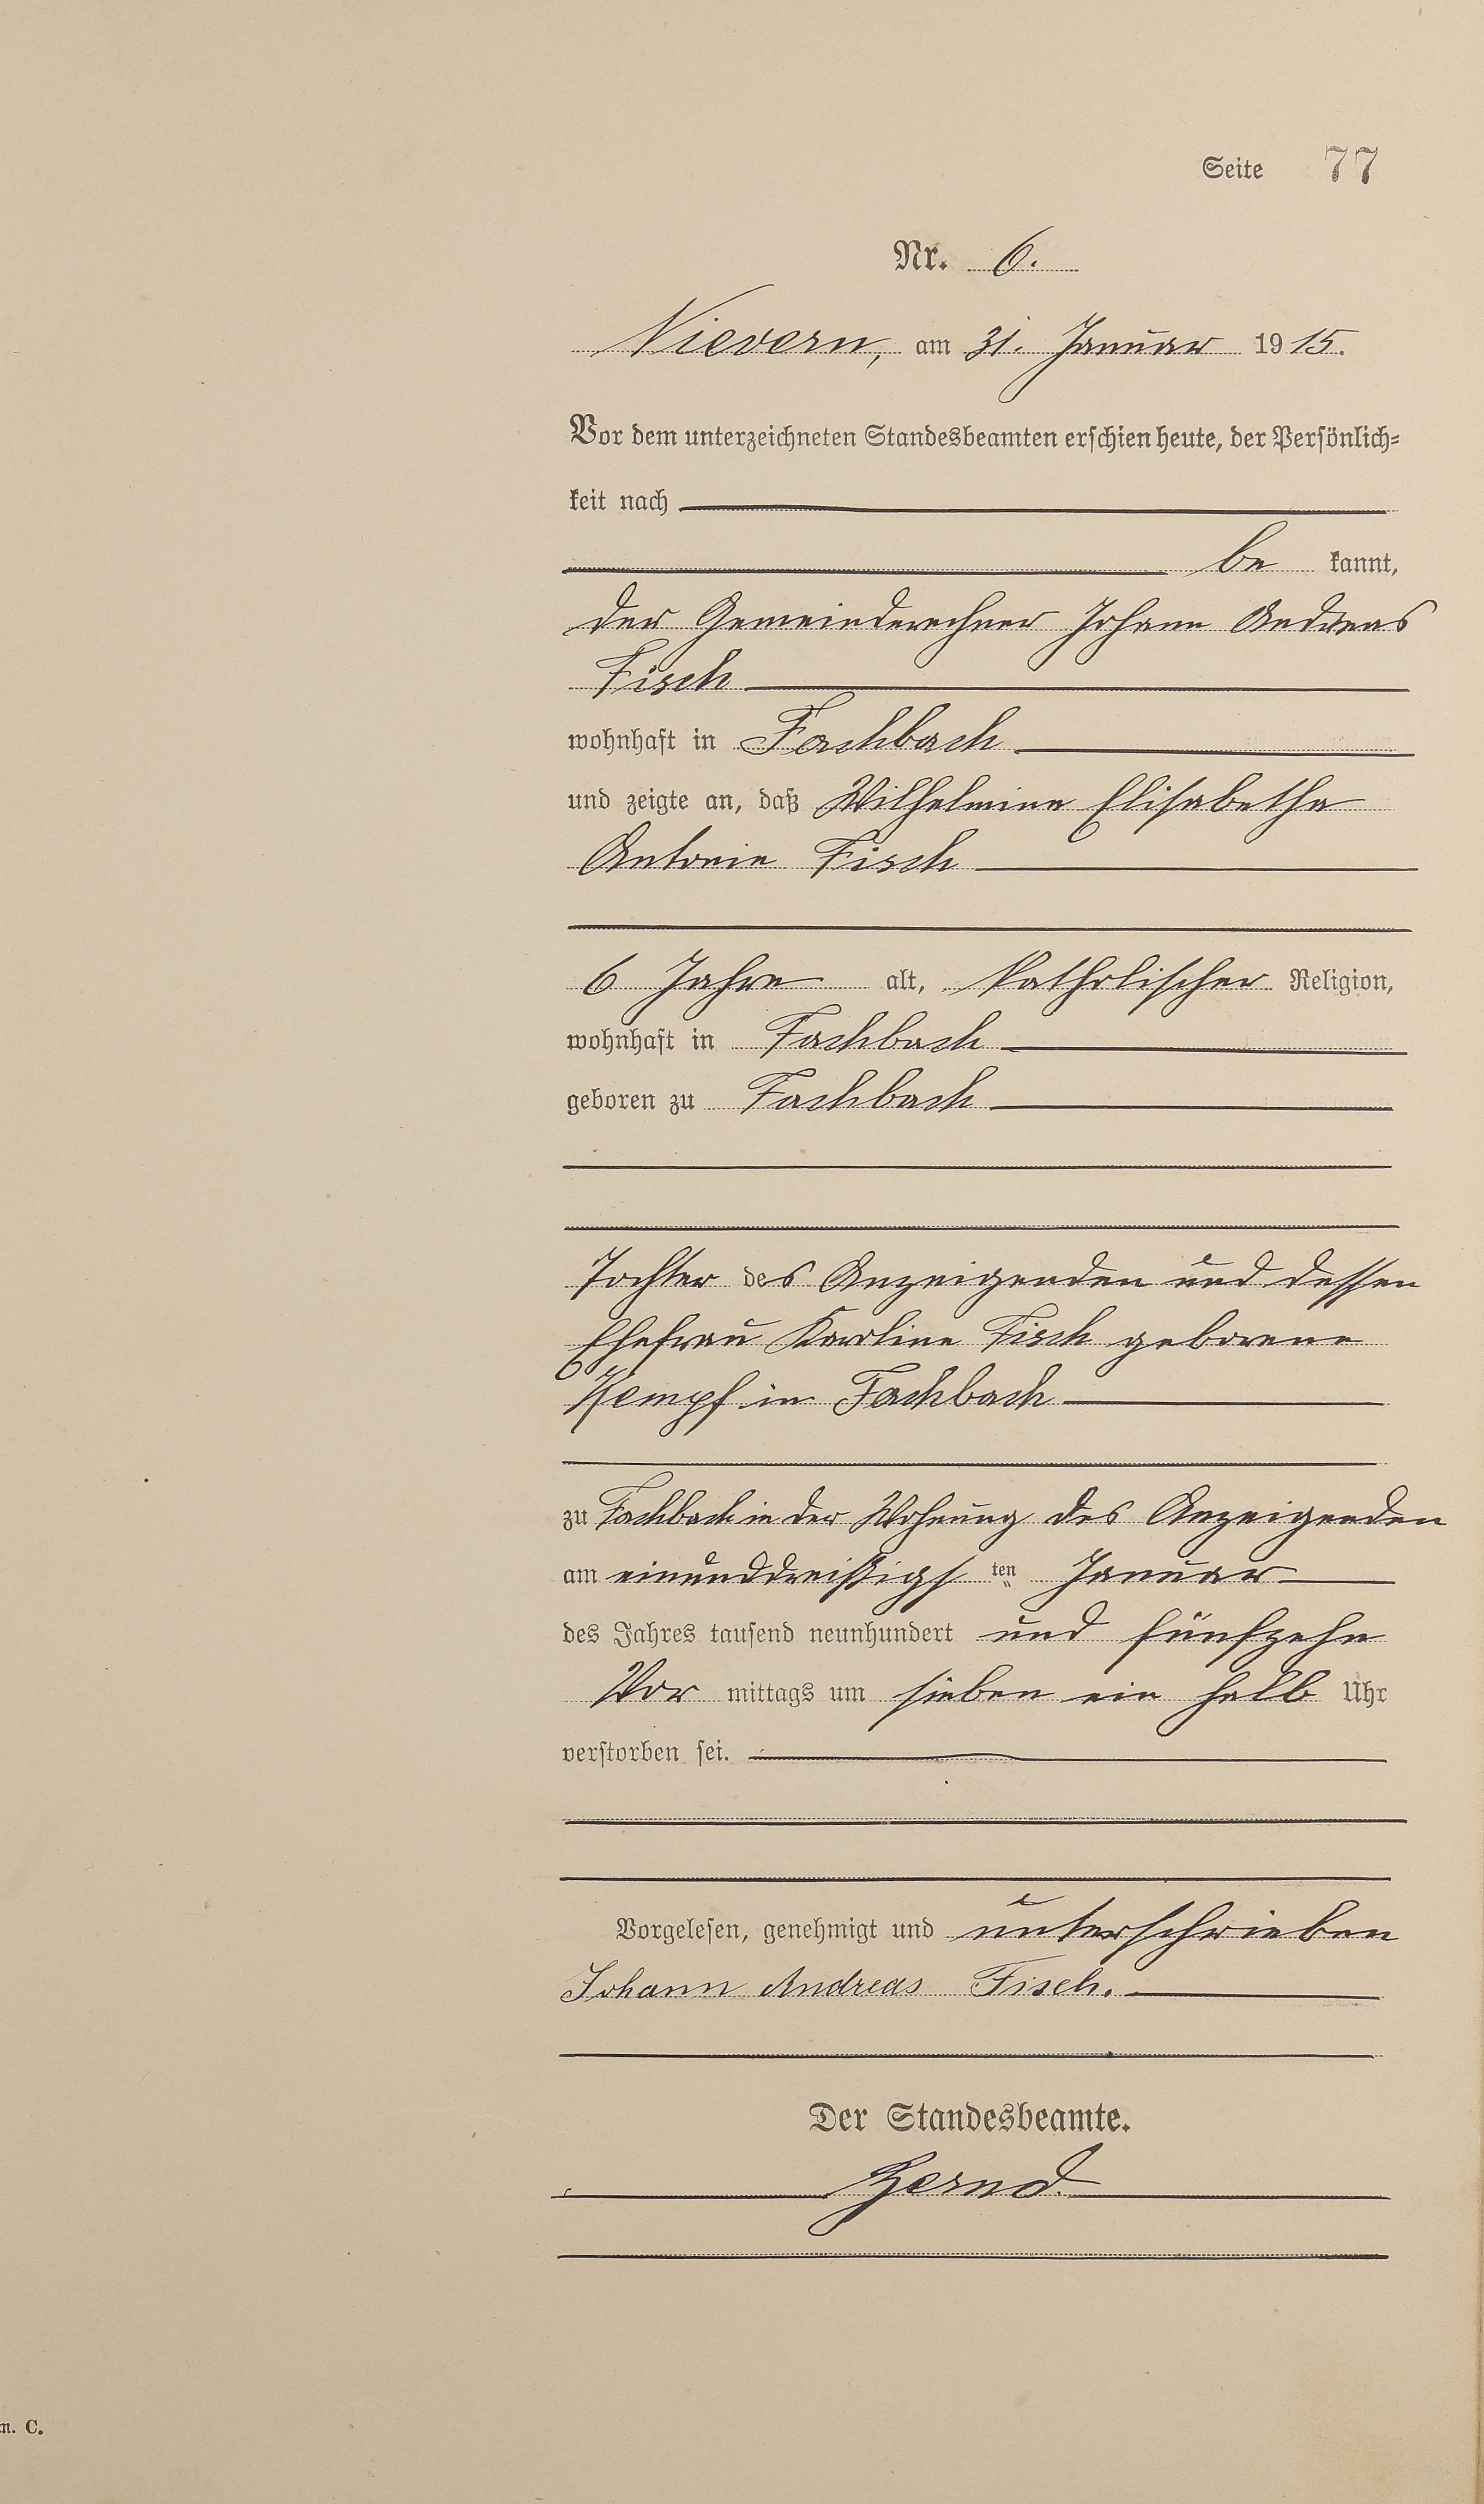 Seite 77
Nr. 6.
Nievern, am 31. Januar 1915.
Vor dem unterzeichneten Standesbeamten erschien heute, der Persönlich-
keit nach
be kannt,
der Gemeinderechner Johann Andreas
Fisch
wohnhaft in Fachbach
und zeigte an, daß Wilhelmine Elisabetha
Antonie Fisch
6 Jahre alt, katholischer Religion,
wohnhaft in Fachbach
geboren zu Fachbach
Tochter des Anzeigenden und dessen
Ehefrau Karoline Fisch geborene
Kempf in Fachbach
zu Fachbach in der Wohnung des Anzeigenden
am einunddreißigs ten Januar
des Jahres tausend neunhundert und fünfzehn
Vor mittags um sieben ein halb Uhr
verstorben sei.
Vorgelesen, genehmigt und unterschrieben
Johann Andreas Fisch.
Der Standesbeamte.
m. C.